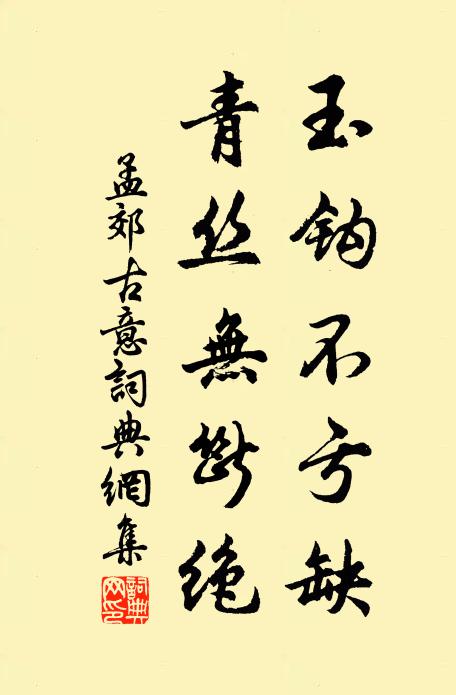 玉鈎不亏缺
青丝無斷绝
孟郊古意詞典網集
詞典网印